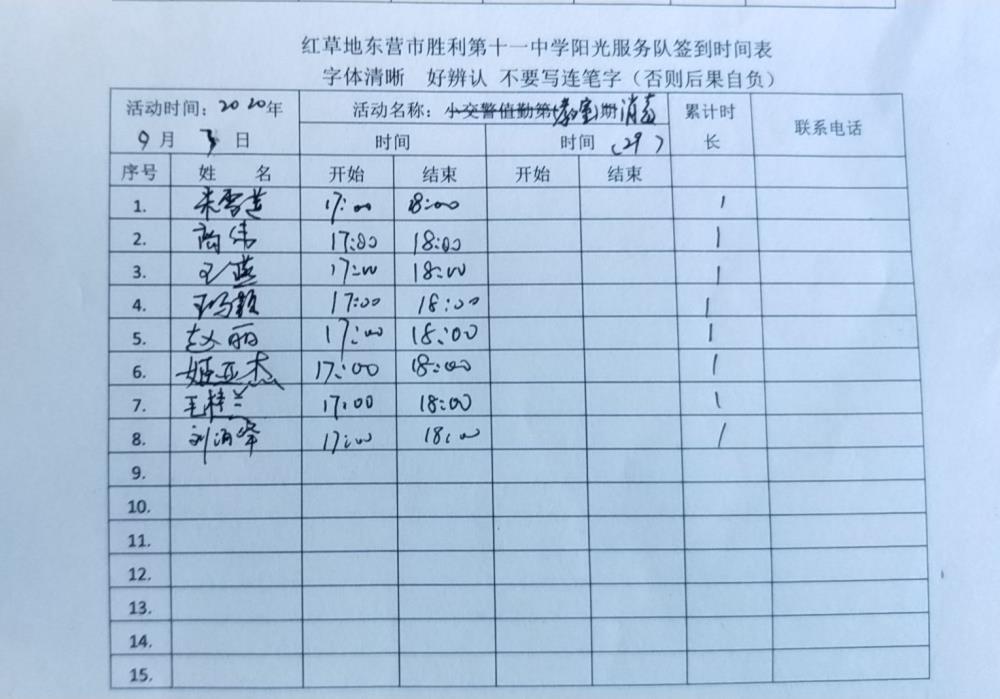 红草地东营市胜利第十一中学阳光服务队签到时间表
字体清晰 好辨认 不要写连笔字（否则后果自负）
活动时间：2020年 活动名称：小交警值勤第 教室 期 消毒 累计时长 联系电话
9月3日 时间 时间（29）
序号 姓名 开始 结束 开始 结束
1. 朱雪莲 17:00 18:00 1
2. 商伟 17:00 18:00 1
3. 王燕 17:00 18:00 1
4. 17:00 18:00 1
5. 赵丽 17:00 18:00 1
6. 姬亚杰 17:00 18:00 1
7. 王桂兰 17:00 18:00 1
8. 刘 17:00 18:00 1
9.
10.
11.
12.
13.
14.
15.